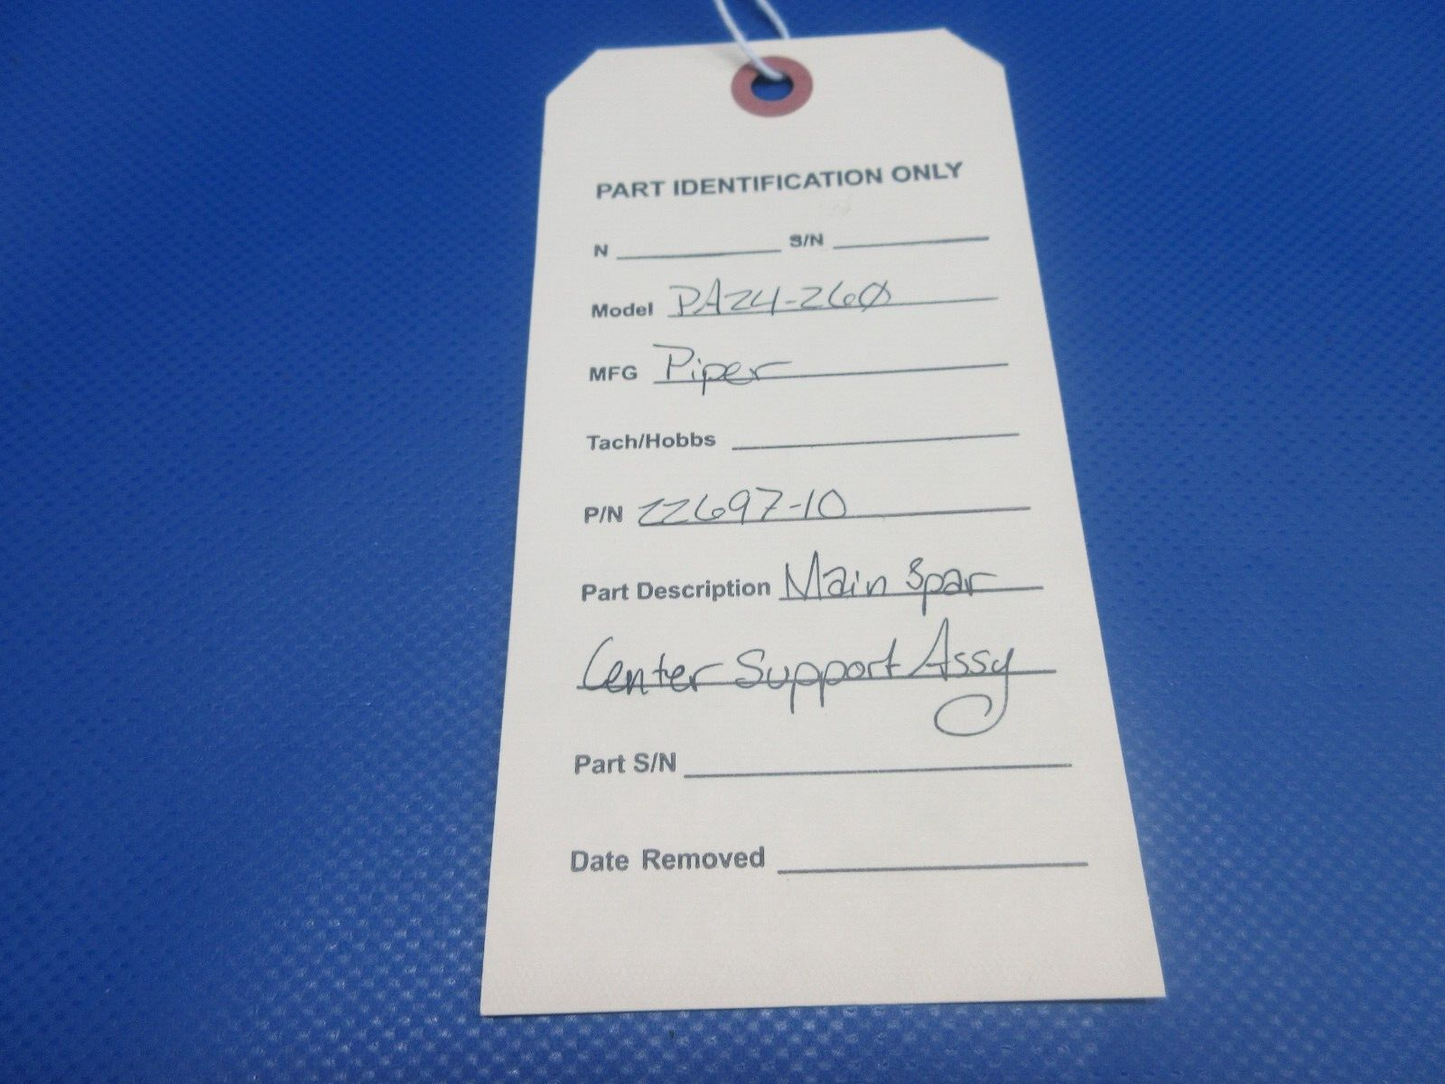 PART IDENTIFICATION ONLY
N ____________ S/N ____________
Model PA24-260
MFG Piper
Tach/Hobbs ____________
P/N 22697-10
Part Description Main Spar
Center Support Assy
Part S/N ____________
Date Removed ____________